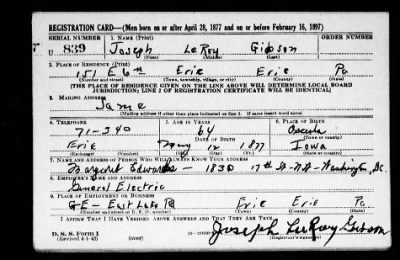 REGISTRATION CARD—(Men born on or after April 28, 1877 and on or before February 16, 1897)
SERIAL NUMBER 1. NAME (Print)
U 839 Joseph LeRoy Gibson
(First) (Middle) (Last)
2. PLACE OF RESIDENCE (Print)
151 E 6th Erie Erie Pa
(Number and street) (Town, township, village, or city) (County) (State)
[THE PLACE OF RESIDENCE GIVEN ON THE LINE ABOVE WILL DETERMINE LOCAL BOARD
JURISDICTION; LINE 2 OF REGISTRATION CERTIFICATE WILL BE IDENTICAL]
3. MAILING ADDRESS
Same
[Mailing address if other than place indicated on line 2. If same insert word same]
4. TELEPHONE 5. AGE IN YEARS 6. PLACE OF BIRTH
71-340 64 Osceola
DATE OF BIRTH (Town or county)
Erie May 12 1877 Iowa
(Exchange) (Number) (Mo.) (Day) (Yr.) (State or country)
7. NAME AND ADDRESS OF PERSON WHO WILL ALWAYS KNOW YOUR ADDRESS
Margaret Edwards — 1830 17th St - Washington, D.C.
8. EMPLOYER'S NAME AND ADDRESS
General Electric
9. PLACE OF EMPLOYMENT OR BUSINESS
G-E- East Lake Rd Erie Erie Pa
(Number and street or R. F. D. number) (Town) (County) (State)
I AFFIRM THAT I HAVE VERIFIED ABOVE ANSWERS AND THAT THEY ARE TRUE.
Joseph LeRoy Gibson
D. S. S. Form 1
(Revised 4-1-42) (over) (Registrant's signature)